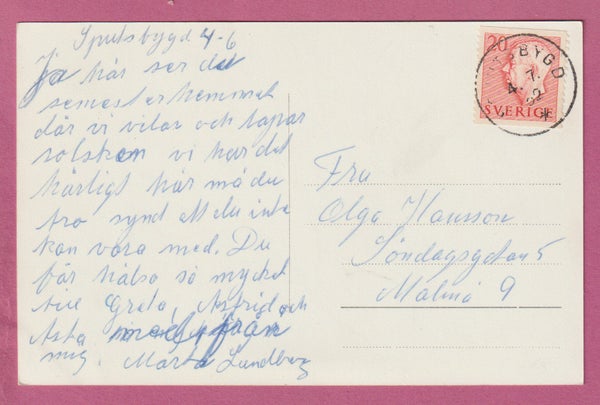 Sputsbygd 4-6
Ja här ser du
semesterhemmet
där vi vilar och lapar
solsken vi har det
härligt här må du
tro synd att du inte
kan vara med. Du
får hälsa så mycket
till Greta, Astrid och
Asta från
mig Märta Lundberg
20
SBYGD
4. 7.
52
SVERIGE
Fru
Olga Hansson
Söndagsgatan 5
Malmö 9